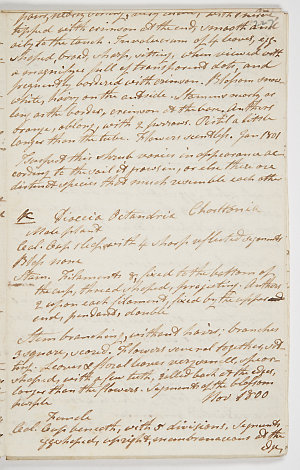 tipped with crimson at the end, smooth and
oily to the touch. Involucrum of 4 leaves, egg
shaped, broad, sharp, sitting, when viewed with
a magnifier full of transparent dots, and
frequently bordered with crimson. Blossom snow
white, hairy on the outside. Stamens nearly as
long as the border, crimson at the base. Anthers
orange, oblong, with 2 furrows. Pistil a little
longer than the tube. Flowers scentless. Jan 1801
I suspect this shrub varies in appearance ac
cording to the soil it grows in, or else there are
distinct species that much resemble each other
K Dioecia Octandria
Male plant
Cal. Cup deep, with 4 sharp reflected segments
Bloss none
Stam. Filaments 4 fixed to the bottom of
the cup, thread shaped, projecting. Anthers
2 upon each filament, fixed by the upper
end, pendant, double
Stem branching, without hairs; branches
square, Flowers several together, sit
ting. Leaves & floral leaves very small, spear
shaped, with a few teeth, rolled back at the edges,
longer than the flowers. Segments of the blossom
purple Nov 1800
Female
Cal. Cup beneath, with 4 divisions. Segments
egg shaped, upright, membranaceous at the
edge,